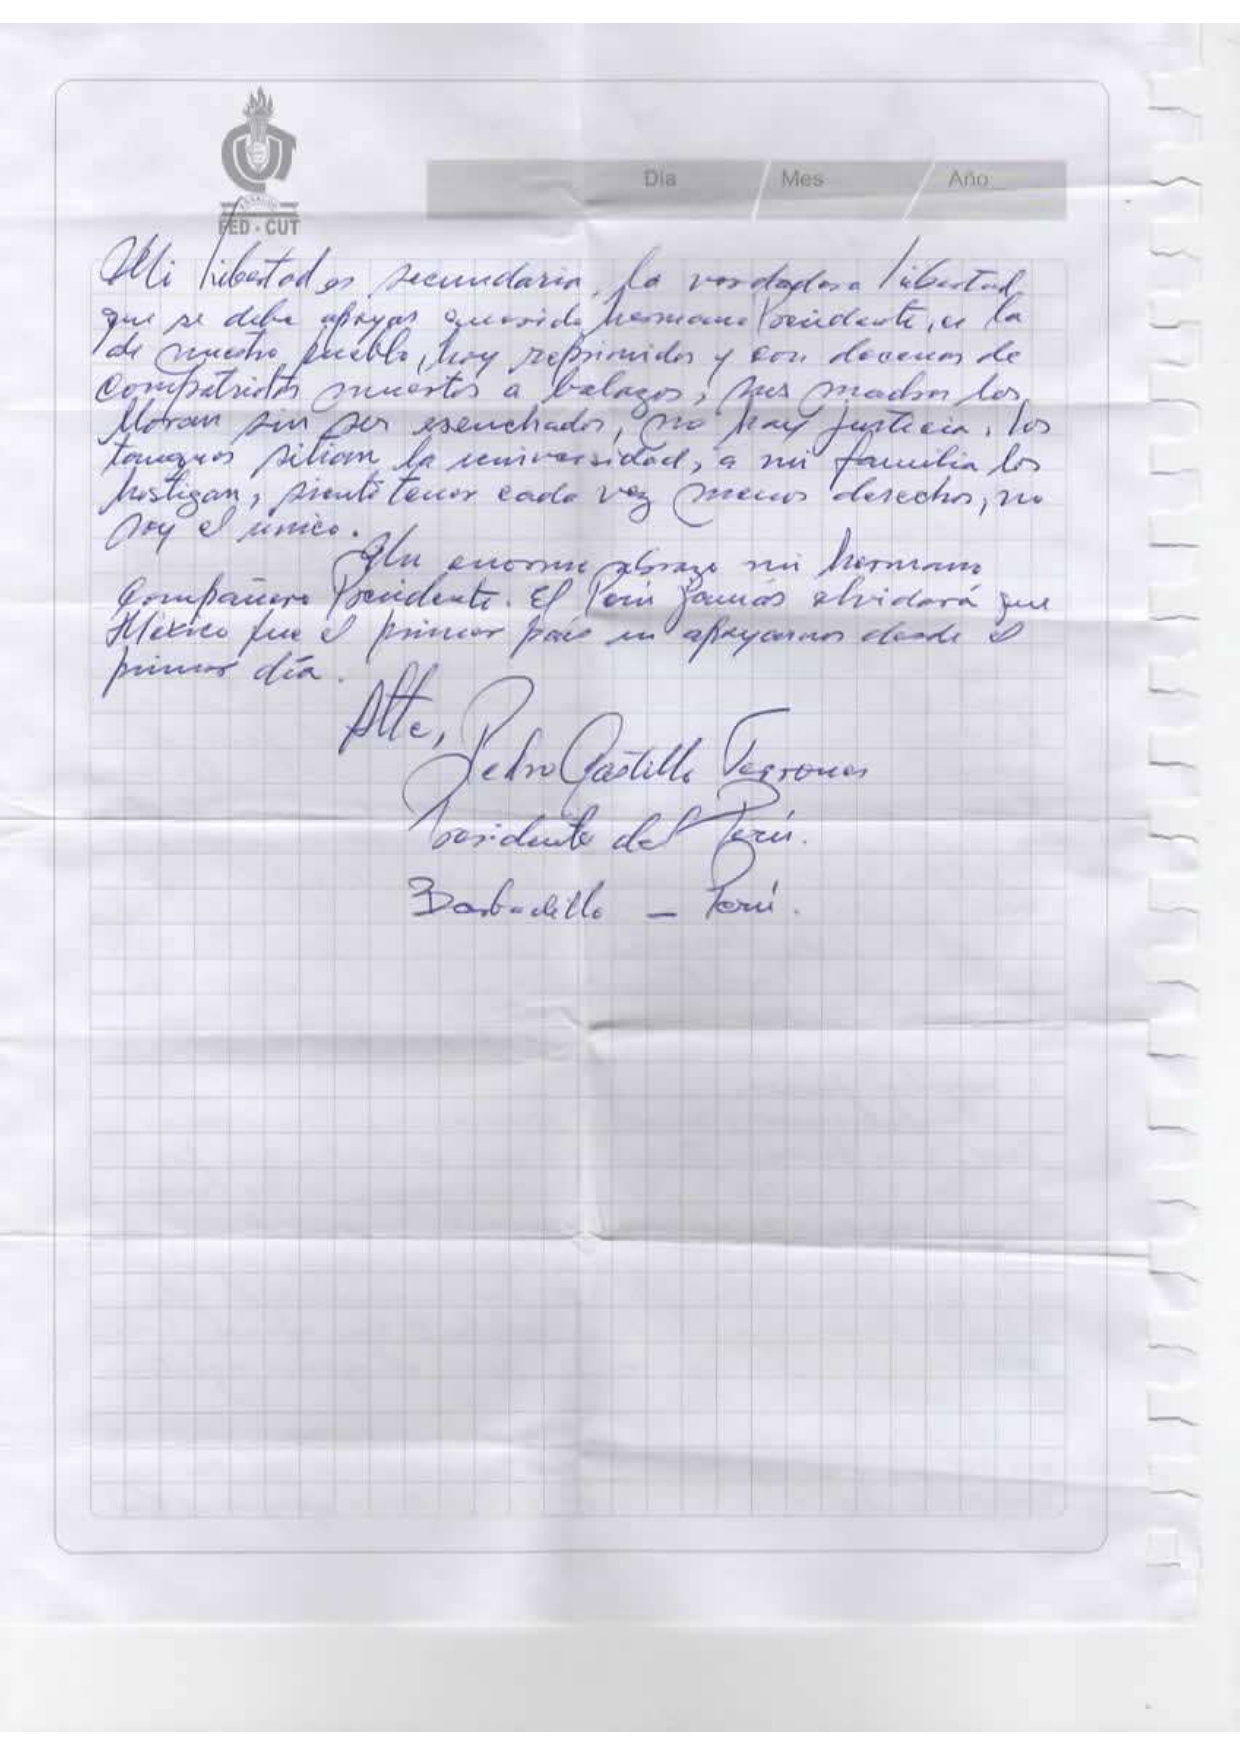 FED - CUT
Día Mes Año
Mi libertad es secundaria, la verdadera libertad
que se debe apoyar querido hermano Presidente, es la
de nuestro pueblo, hoy reprimidos y con docenas de
compatriotas muertos a balazos, sus madres los
lloran sin ser escuchados, no hay justicia, los
tanques sitian la universidad, a mi familia los
hostigan, siento tener cada vez menos derechos, no
soy el unico.
Un enorme abrazo mi hermano
Compañero Presidente. El Perú jamás olvidará que
México fue el primer país en apoyarnos desde el
primer día.
Atte,
Pedro Castillo Terrones
Presidente del Perú.
Barbadillo – Perú.